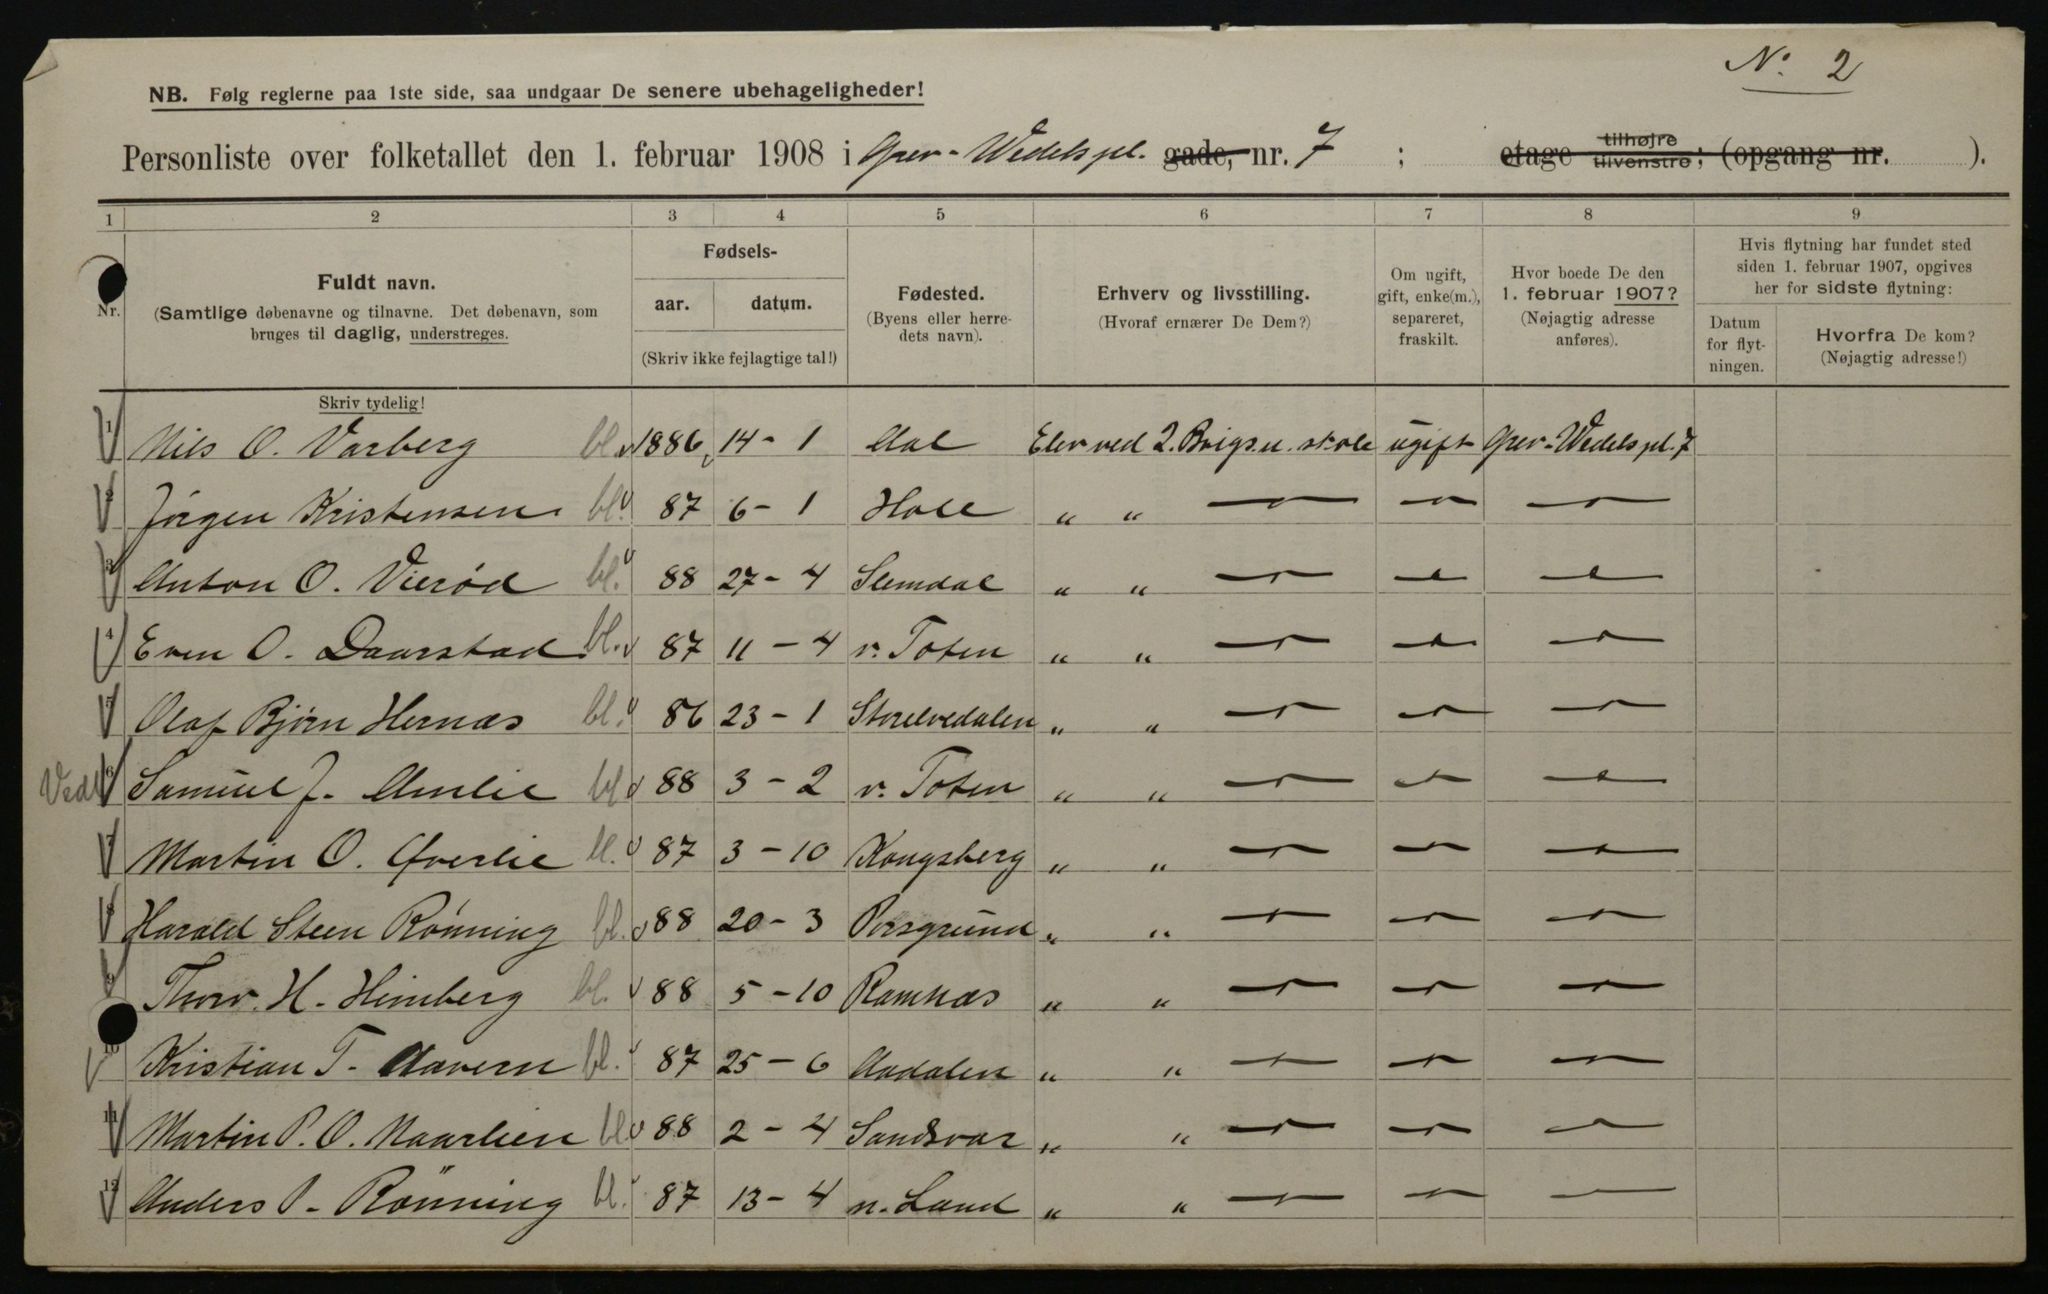 No. 2
NB. Følg reglerne paa 1ste side, saa undgaar De senere ubehageligheder!
Personliste over folketallet den 1. februar 1908 i Grev-Wedels pl. gade, nr. 7 ; etage tilhøjre tilvenstre; (opgang nr. ).
1 2 3 4 5 6 7 8 9
Nr.
Fuldt navn.
(Samtlige døbenavne og tilnavne. Det døbenavn, som
bruges til daglig, understreges.
Skriv tydelig!
Fødsels-
aar. datum.
(Skriv ikke fejlagtige tal!)
Fødested.
(Byens eller herre-
dets navn).
Erhverv og livsstilling.
(Hvoraf ernærer De Dem?)
Om ugift,
gift, enke(m.),
separeret,
fraskilt.
Hvor boede De den
1. februar 1907?
(Nøjagtig adresse
anføres).
Hvis flytning har fundet sted
siden 1. februar 1907, opgives
her for sidste flytning:
Datum
for flyt-
ningen.
Hvorfra De kom?
(Nøjagtig adresse!)
1 Nils O. Varberg bl. 1886 14 - 1 Aal Elev ved 2. Brigs. u. skole ugift Grev-Wedels pl. 7
2 Jörgen Kristensen bl. 87 6 - 1 Hole " "
3 Anton O. Vierød bl. 88 27 - 4 Slemdal " "
4 Even O. Daarstad bl. 87 11 - 4 v. Toten " "
5 Olaf Bjørn Hernæs bl. 86 23 - 1 Storelvedalen " "
Vedl 6 Samuel J. Amlie bl 88 3 - 2 v. Toten " "
7 Martin O. Øverlie bl. 87 3 - 10 Kongsberg " "
8 Harald Steen Rönning bl. 88 20 - 3 Porsgrund " "
9 Thorv. H. Himberg bl. 88 5 - 10 Ramnæs " "
10 Kristian T. Aavern bl. 87 25 - 6 Aadalen " "
11 Martin P. O. Maarlien bl. 88 2 - 4 Sandsvær " "
12 Anders P. Rönning bl. 87 13 - 4 n. Land " "